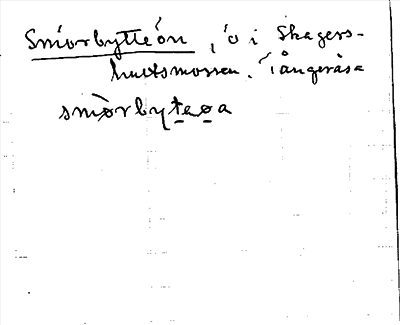 Smörbytteön, ö i Skagers-
hultsmossen. Tångeråsa
smörbyteoa